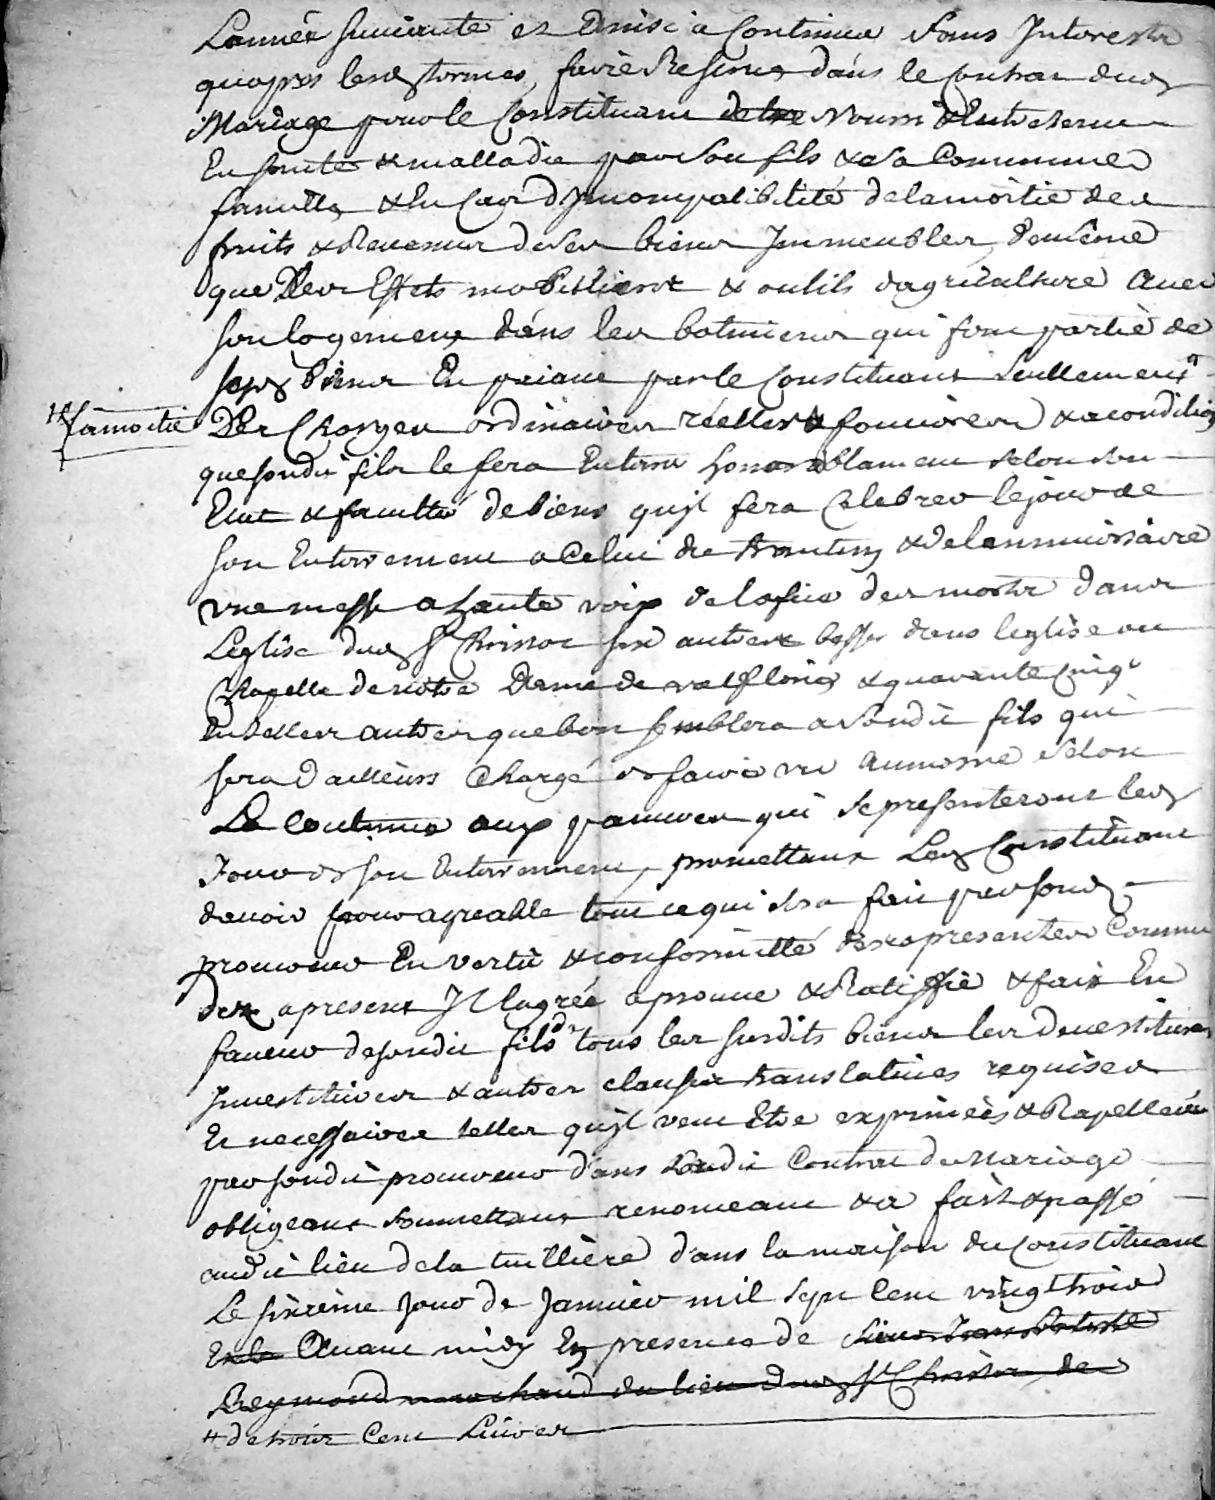 Lannée suivante et ainsi a Continuer sans Interestz
quapres lesd termes, faire Reserve dans le Contrat dud
Mariage pour le Constituant detre Nourri & Entretenu
En sante & malladie par son fils & a sa Commune
famille & En Cas d Jncompatibilité de la moitié des
fruits & Revenus de ses biens Jmmeubles, de mesme
que Des Effets mobilliers & outils dagriculture avec
son logement dans les batimens qui font partie de
sesd biens En paiant par le Constituant seullement #
# la moitié
Des Charges ordinaires réelles & foncieres & a condition
que sondit fils le fera Enterrer honorablement selon son
Etat & faculté de biens quil fera Celebrer le jour de
son Enterrement a Celui de trantin & de lanniversaire
une messe a haute voix de lofice des morts dans
Leglise dud St Christol six autres basses dans leglise ou
Chapelle de notre Dame de valfloris & quarante Cinq
En telles autres que bon semblera a sondit fils qui
sera d ailleurs Chargé de faire une aumosne selon
La Coutume aux pauvres qui se presenteront led
Jour de son Enterrement, promettant Led Constituant
davoir pour agreable tout ce qui sera fait par sond
procureur En vertu & conformitté des presentes Comme
des apresent Jl lagrée aprouve & Ratiffie & fait En
faveur de sondit fils de tous les susdits biens les devestitures
Jnvestitures & autres clauses translatives requises
Et necessaires telles quil veut Etre exprimées & Rapellées
par sondit procureur dans Ledit Contrat de Mariage
obligeant soumettant renonceant &a fait & passé
audit lieu de la tuilliere dans la maison du Constituant
Le sixieme jour de Janvier mil sept Cent vingt trois
Avant midy En presence de Sieur Jean Batiste
Reymond marchand du lieu dud St Christol de
# de trois Cent Livres